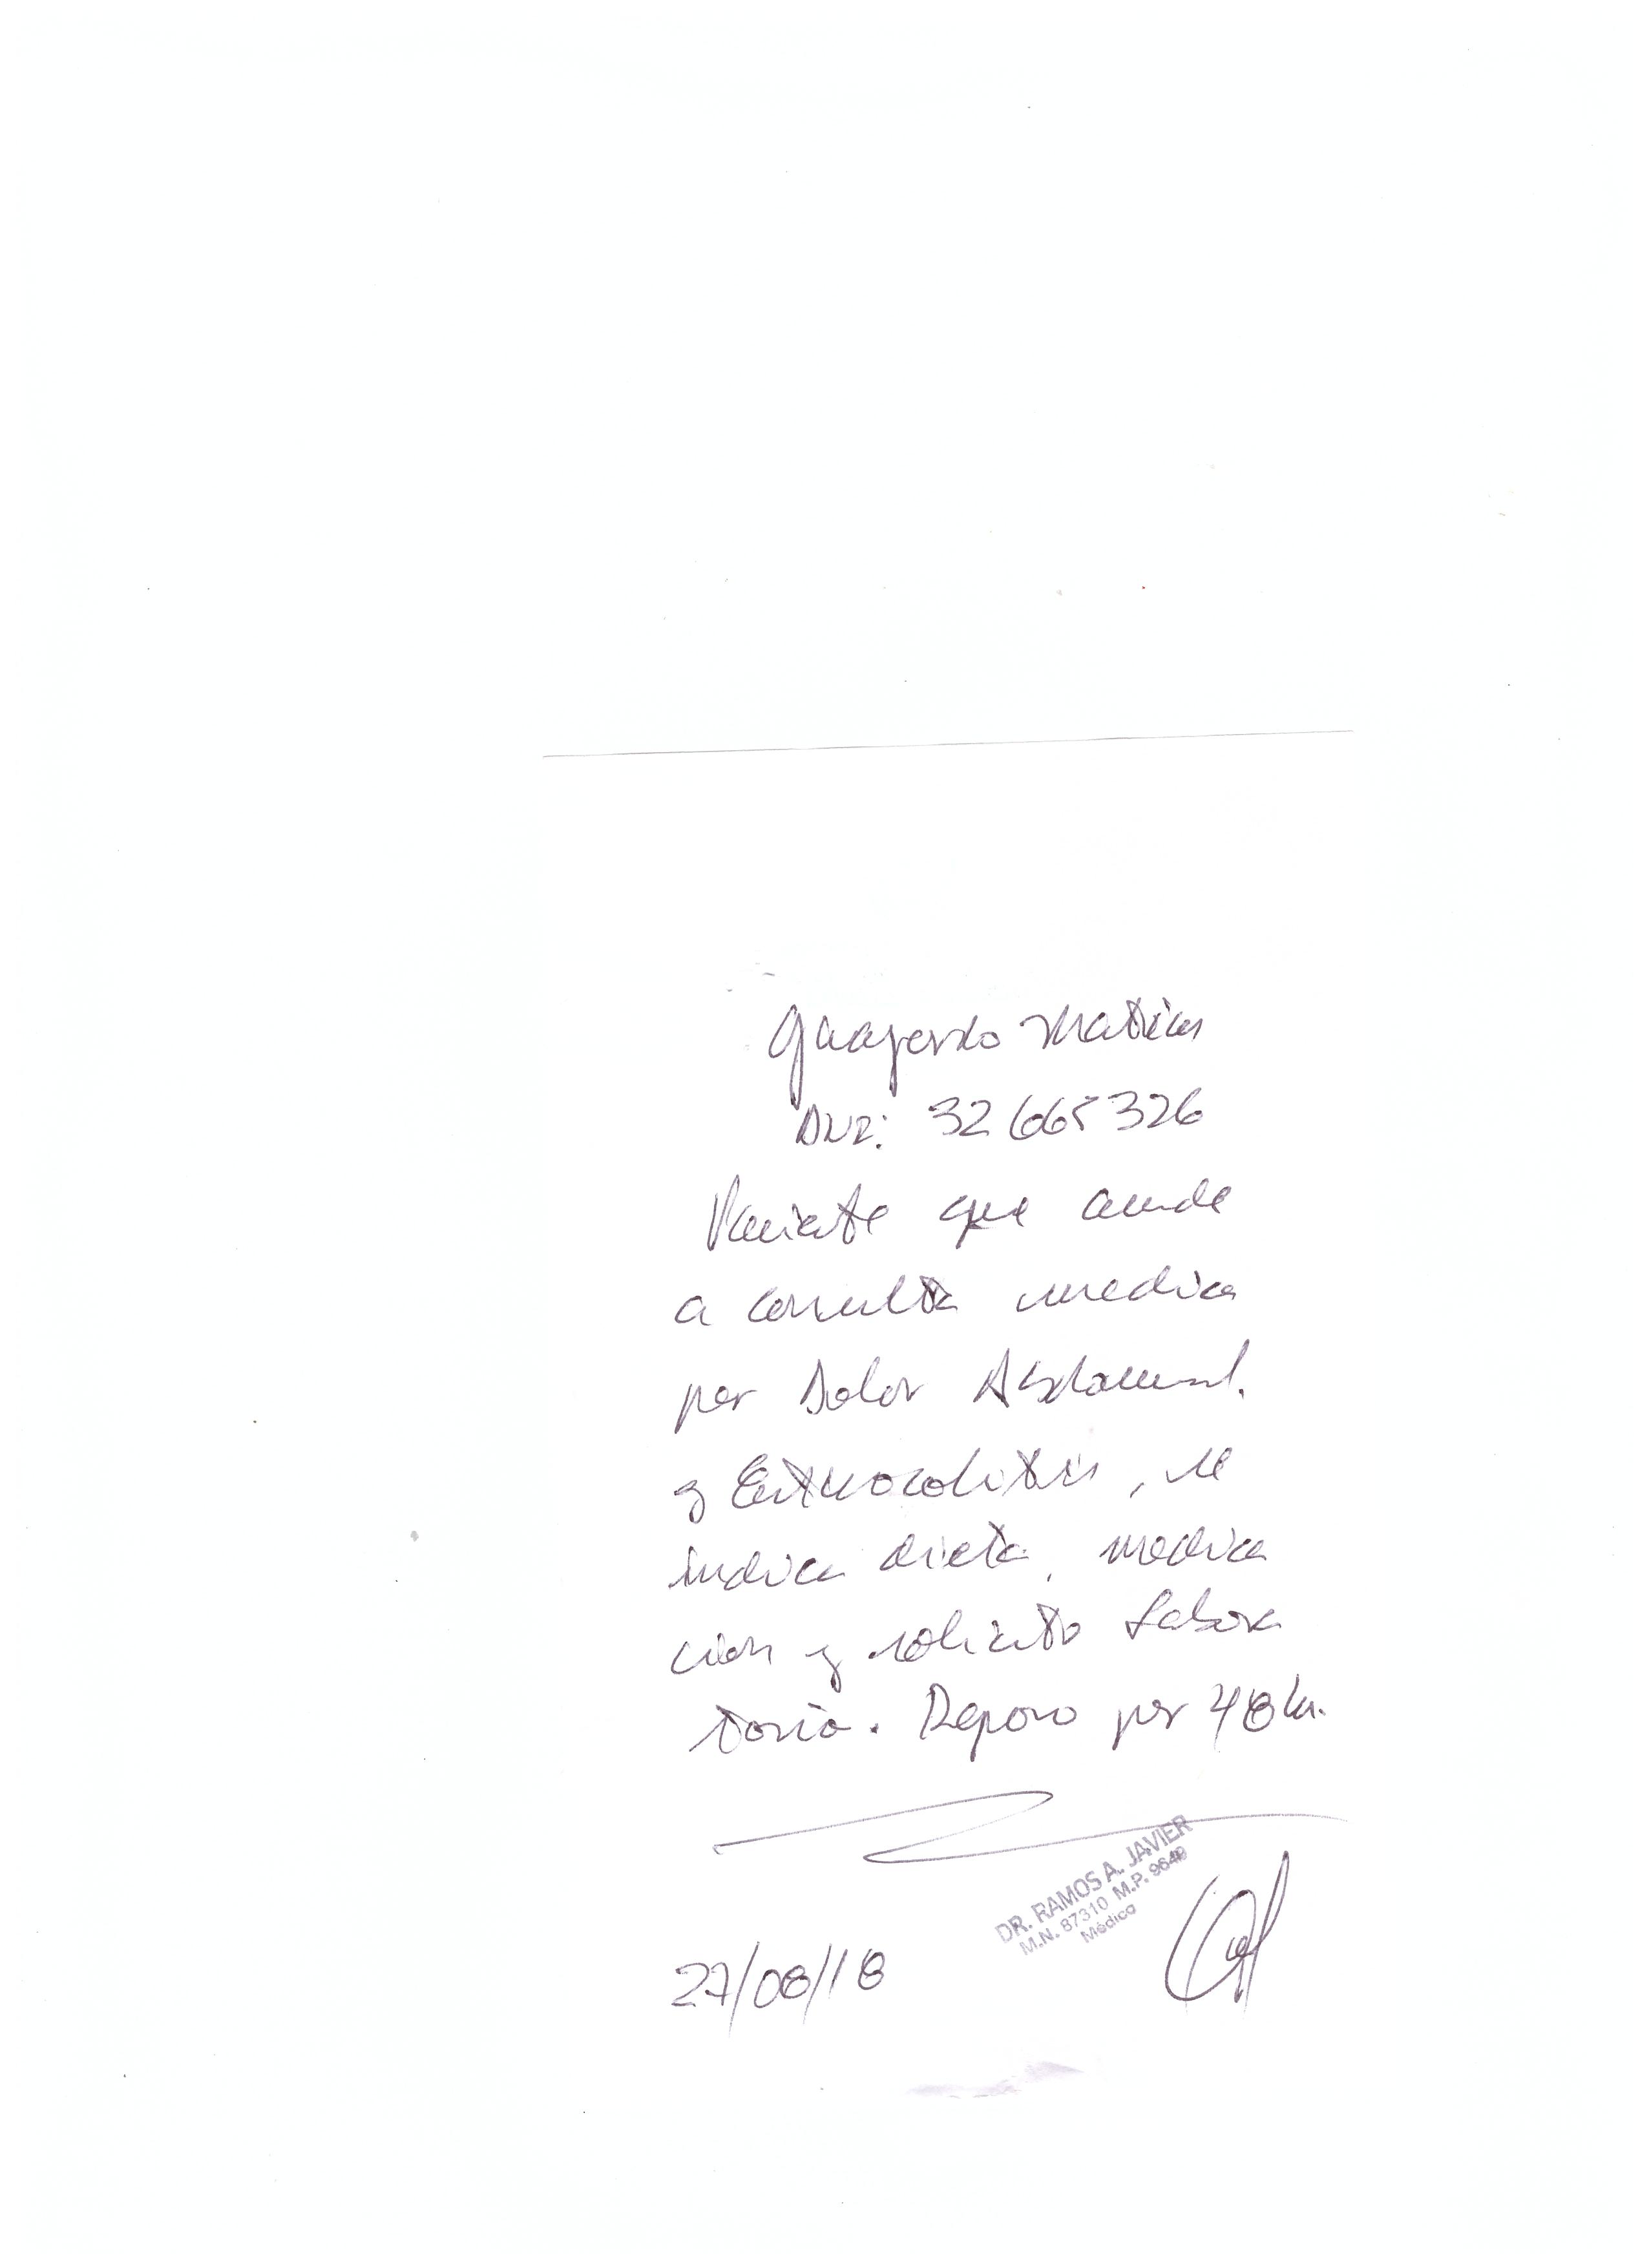 Guajardo Matias
DNI: 32665326
Paciente que acude
a consulta medica
por Dolor Abdominal.
y Enterocolitis, se
indica dieta, medica
cion y solicito labora
torio. Reposo por 48 hs.
DR. RAMOS A. JAVIER
M.N. 87310 M.P. 9640
Médico
27/08/18